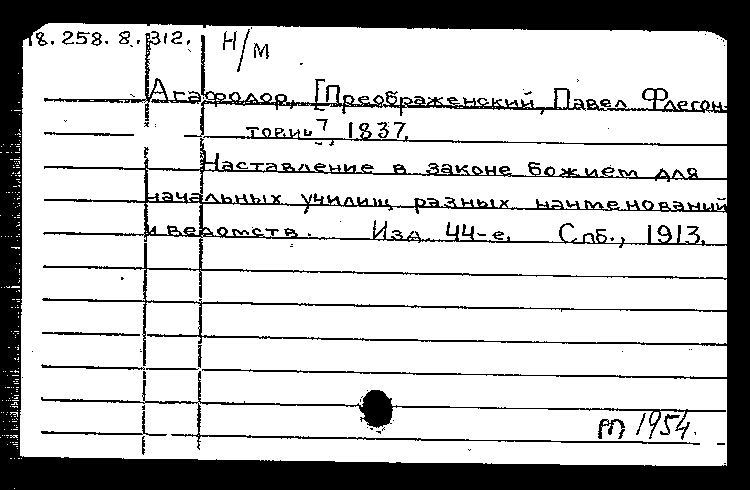 18.258.8.312. Н/М
Агафодор, [Преображенский, Павел Флегон-
тович], 1837.
Наставление в законе божием для
начальных училищ разных наименований
и ведомств. Изд 44-е. Спб., 1913.
РП 1954.